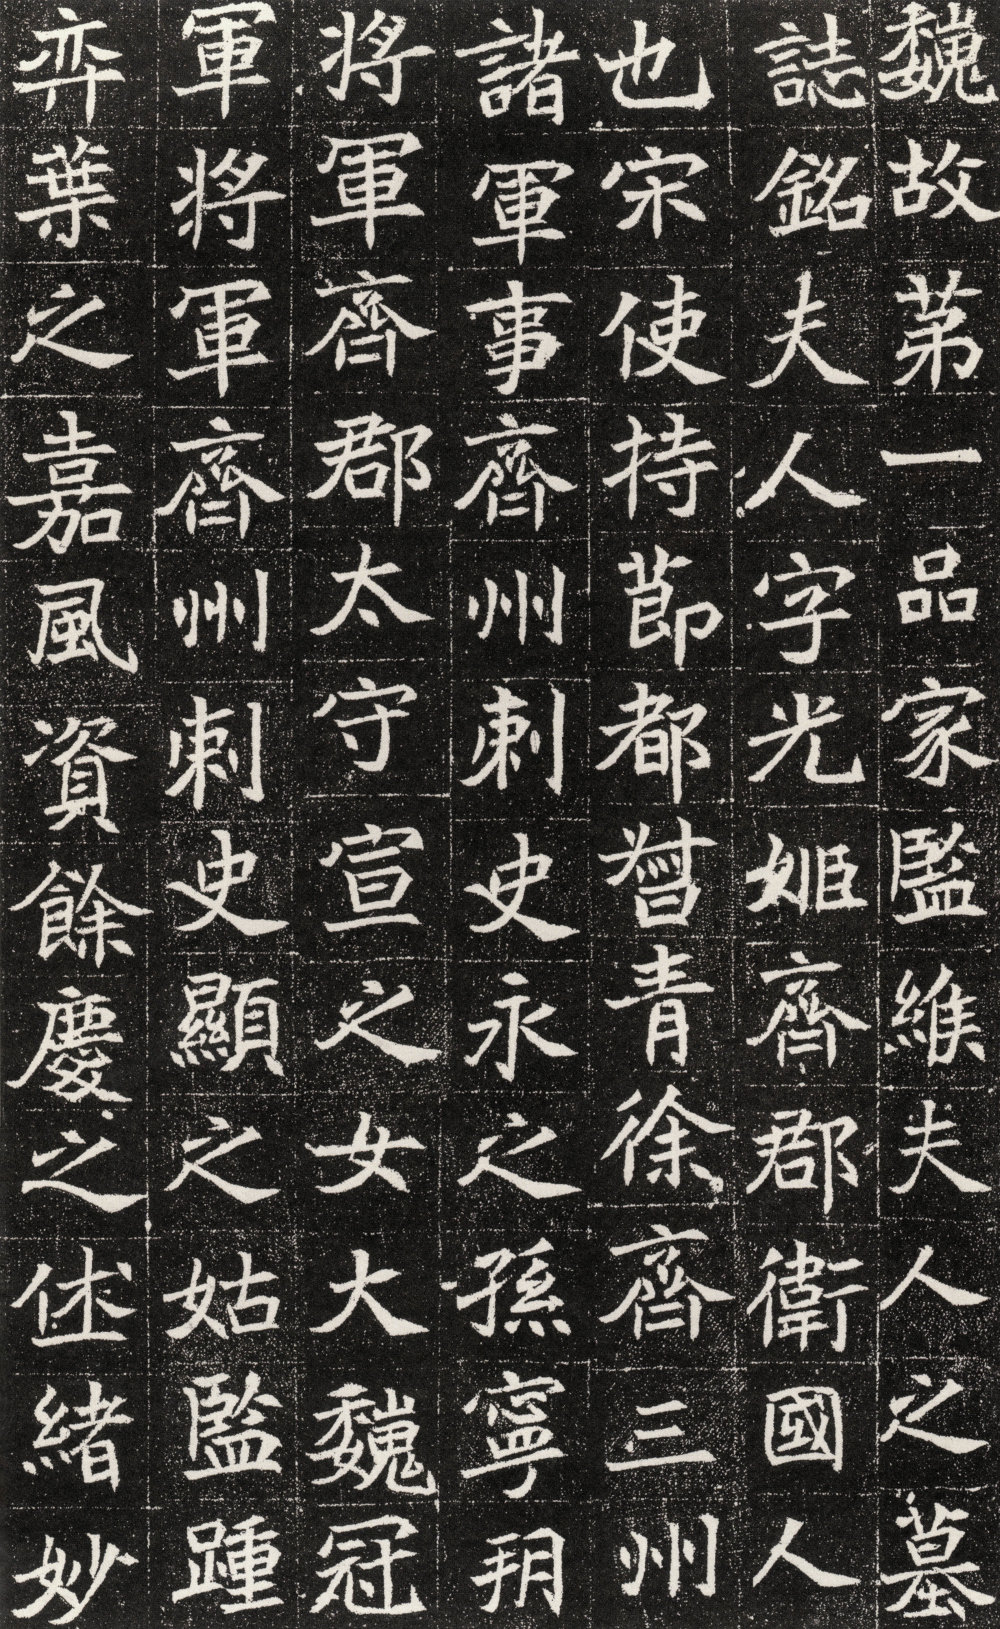 魏故苐一品家監維夫人之墓
誌銘夫人字光姬齊郡衛國人
也宋使持莭都督青徐齊三州
諸軍事齊州刺史永之孫寧朔
將軍齊郡太守宣之女大魏冠
軍將軍齊州刺史顯之姑監踵
弈葉之嘉風資餘慶之俅緒妙